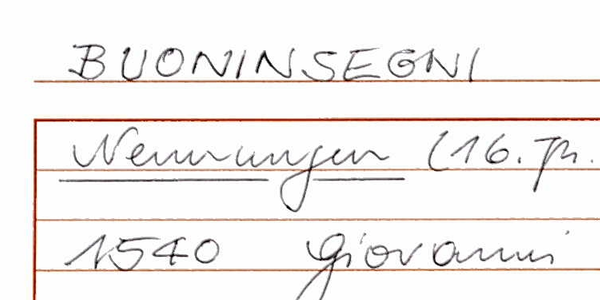 BUONINSEGNI
Nennungen (16. Jh.
1540 Giovanni